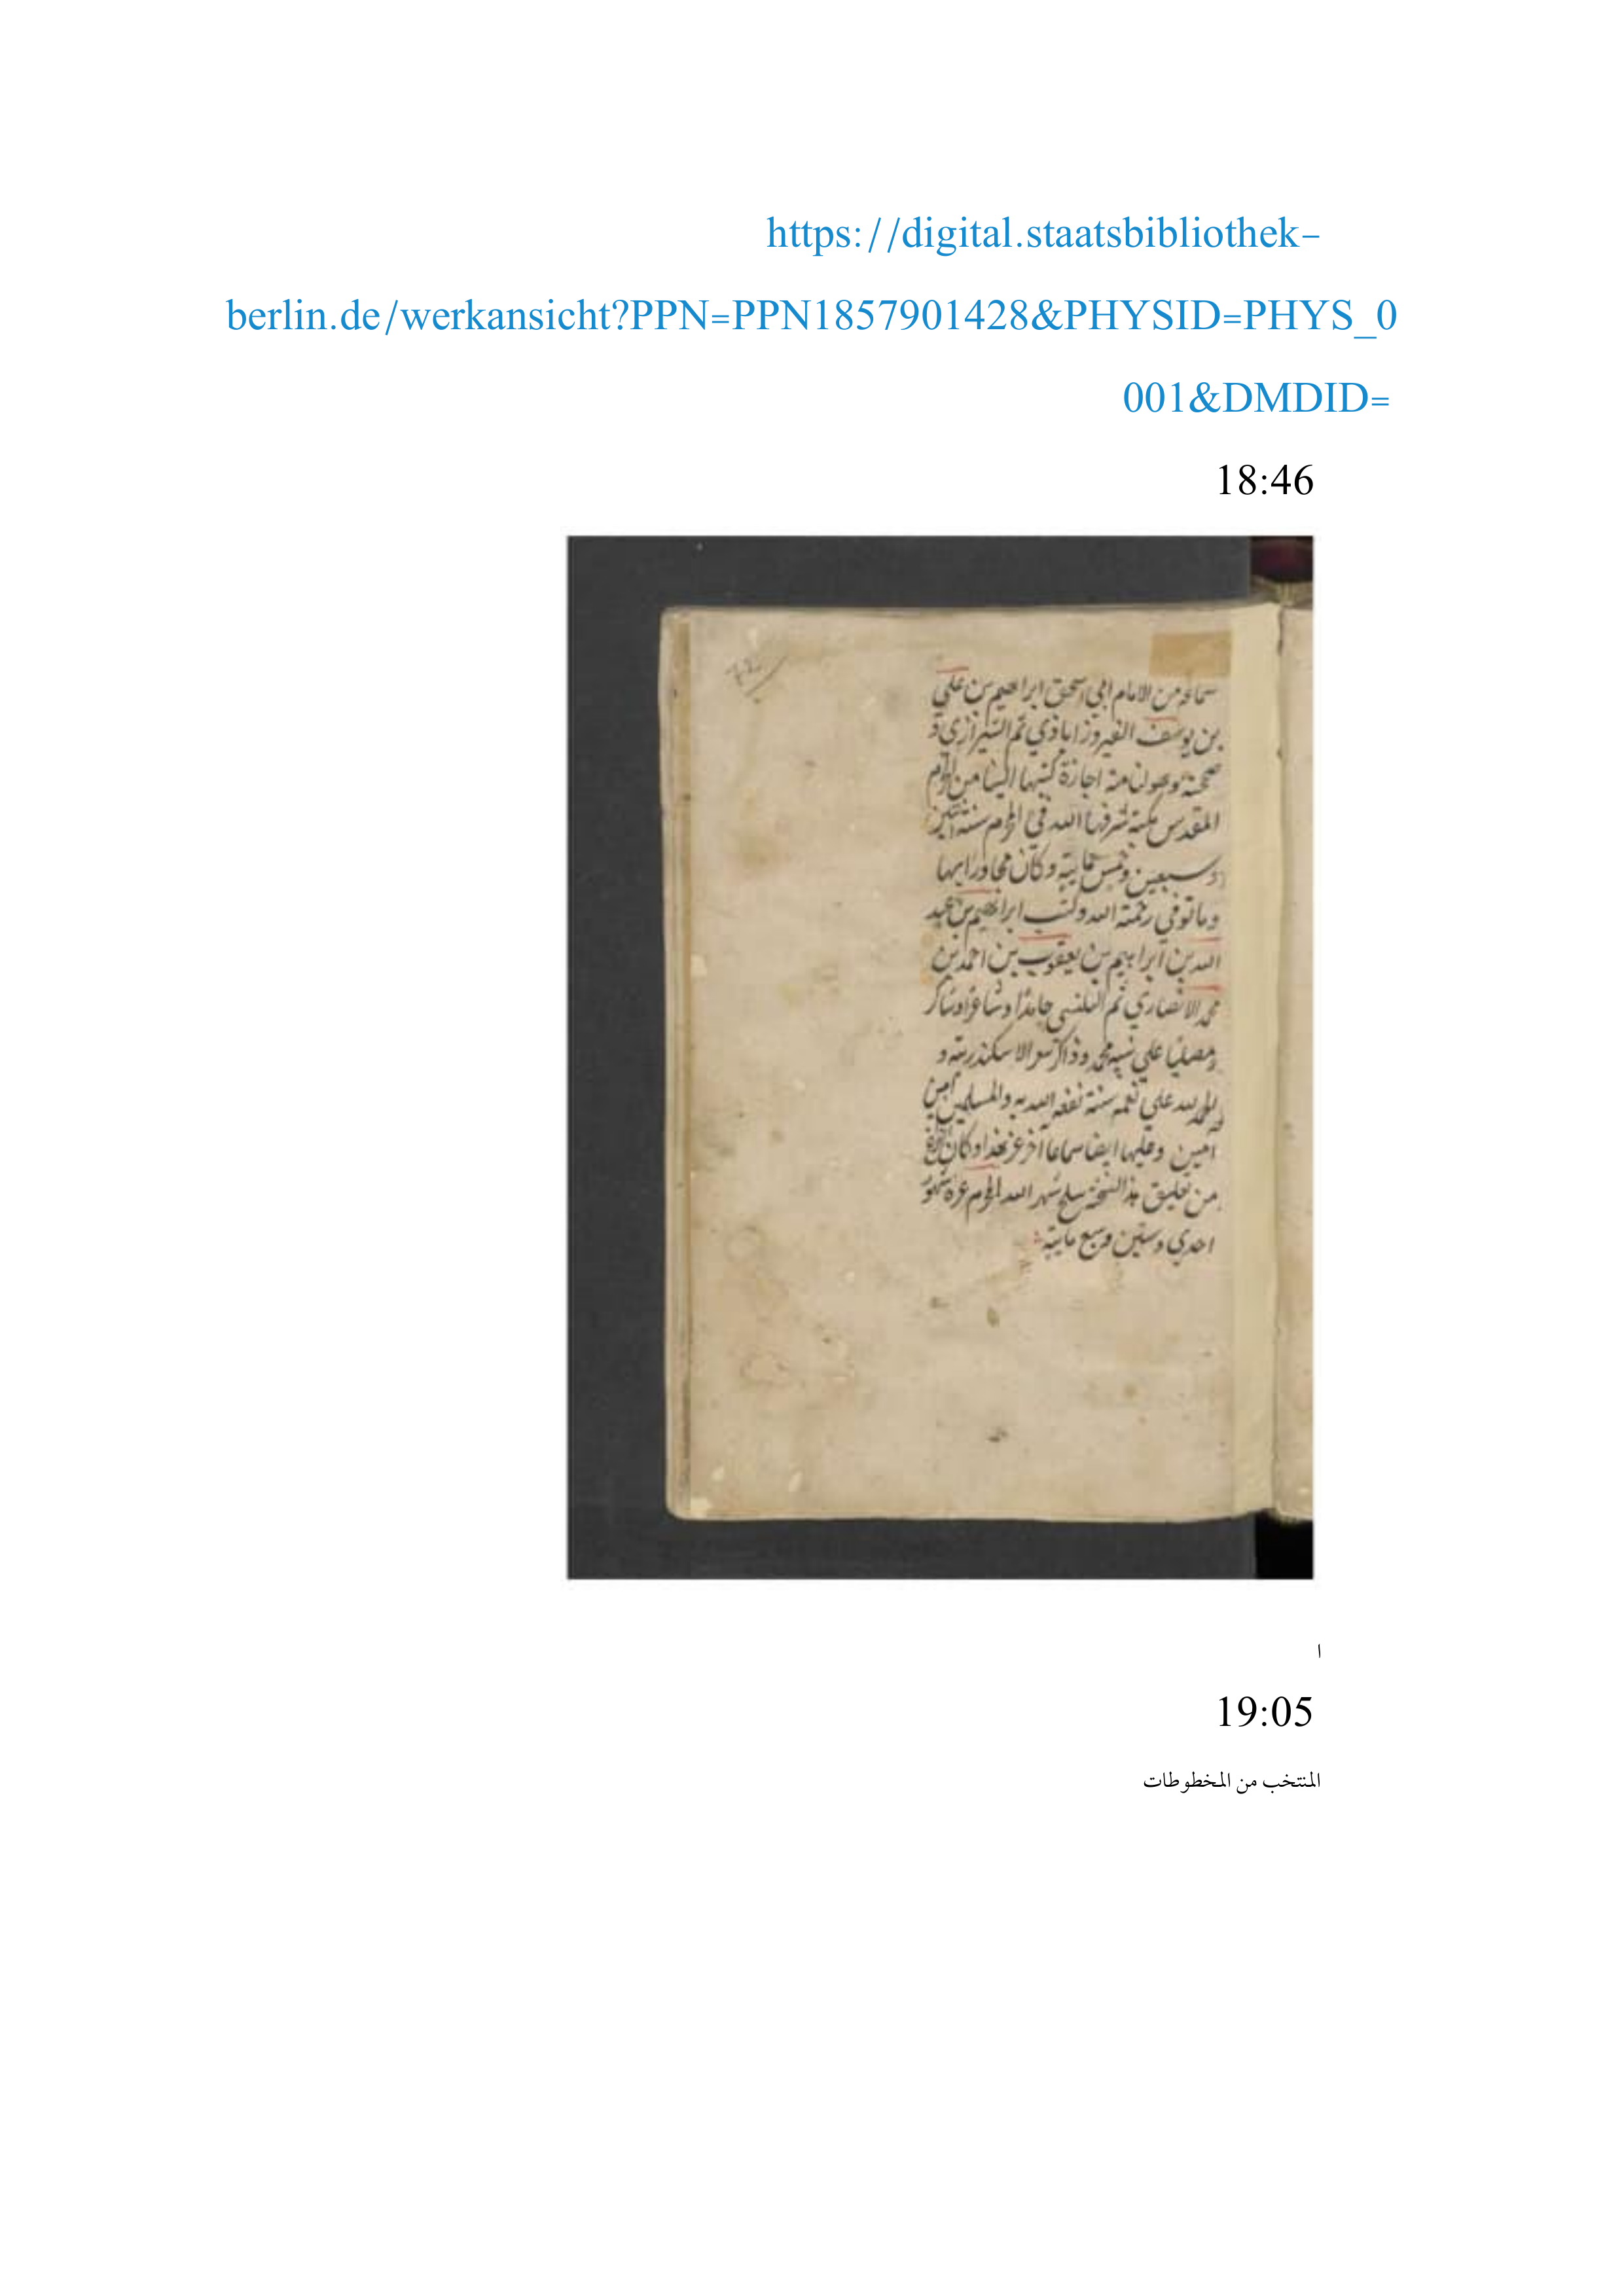 https://digital.staatsbibliothek-
berlin.de/werkansicht?PPN=PPN1857901428&PHYSID=PHYS_0
001&DMDID=
18:46
سماعه من الامام ابي اسحق ابراهيم بن علي
بن يوسف الفيروزاباذي ثم الشيرازي
صحته وصولنا منه اجازة كتبها الينا من
المقدس مكة شرفها الله في المحرم سنة
وسبعين وخمس مايية وكان مجاورا بها
وبها توفي رحمة الله وكتب ابراهيم بن عبد
الله بن ابراهيم بن يعقوب بن احمد بن
محمد الانصاري ثم البلنسي حامدا
ومصليا على نبيه محمد الاسكندرية و
لله علي نعمه سنة نفعه الله به والمسلمين امين
امين وعليها ايضا سماعا آخر وكان
من تعليق هذا النسخة سلخ شهر الله المحرم غرة شهور
احدي وستين وسبع مايية
ا
19:05
المنتخب من المخطوطات